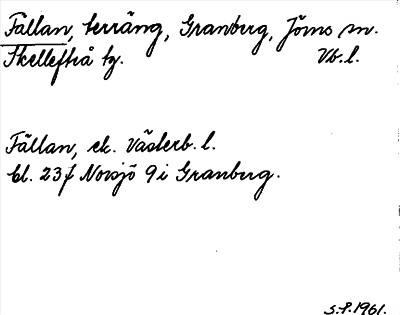 Fällan, terräng, Granberg, Jörns sn.
Skellefteå tg. Vb.l.
Fällan, ek. Västerb. l.
bl. 23f Norsjö 9i Granberg.
S.P. 1961.